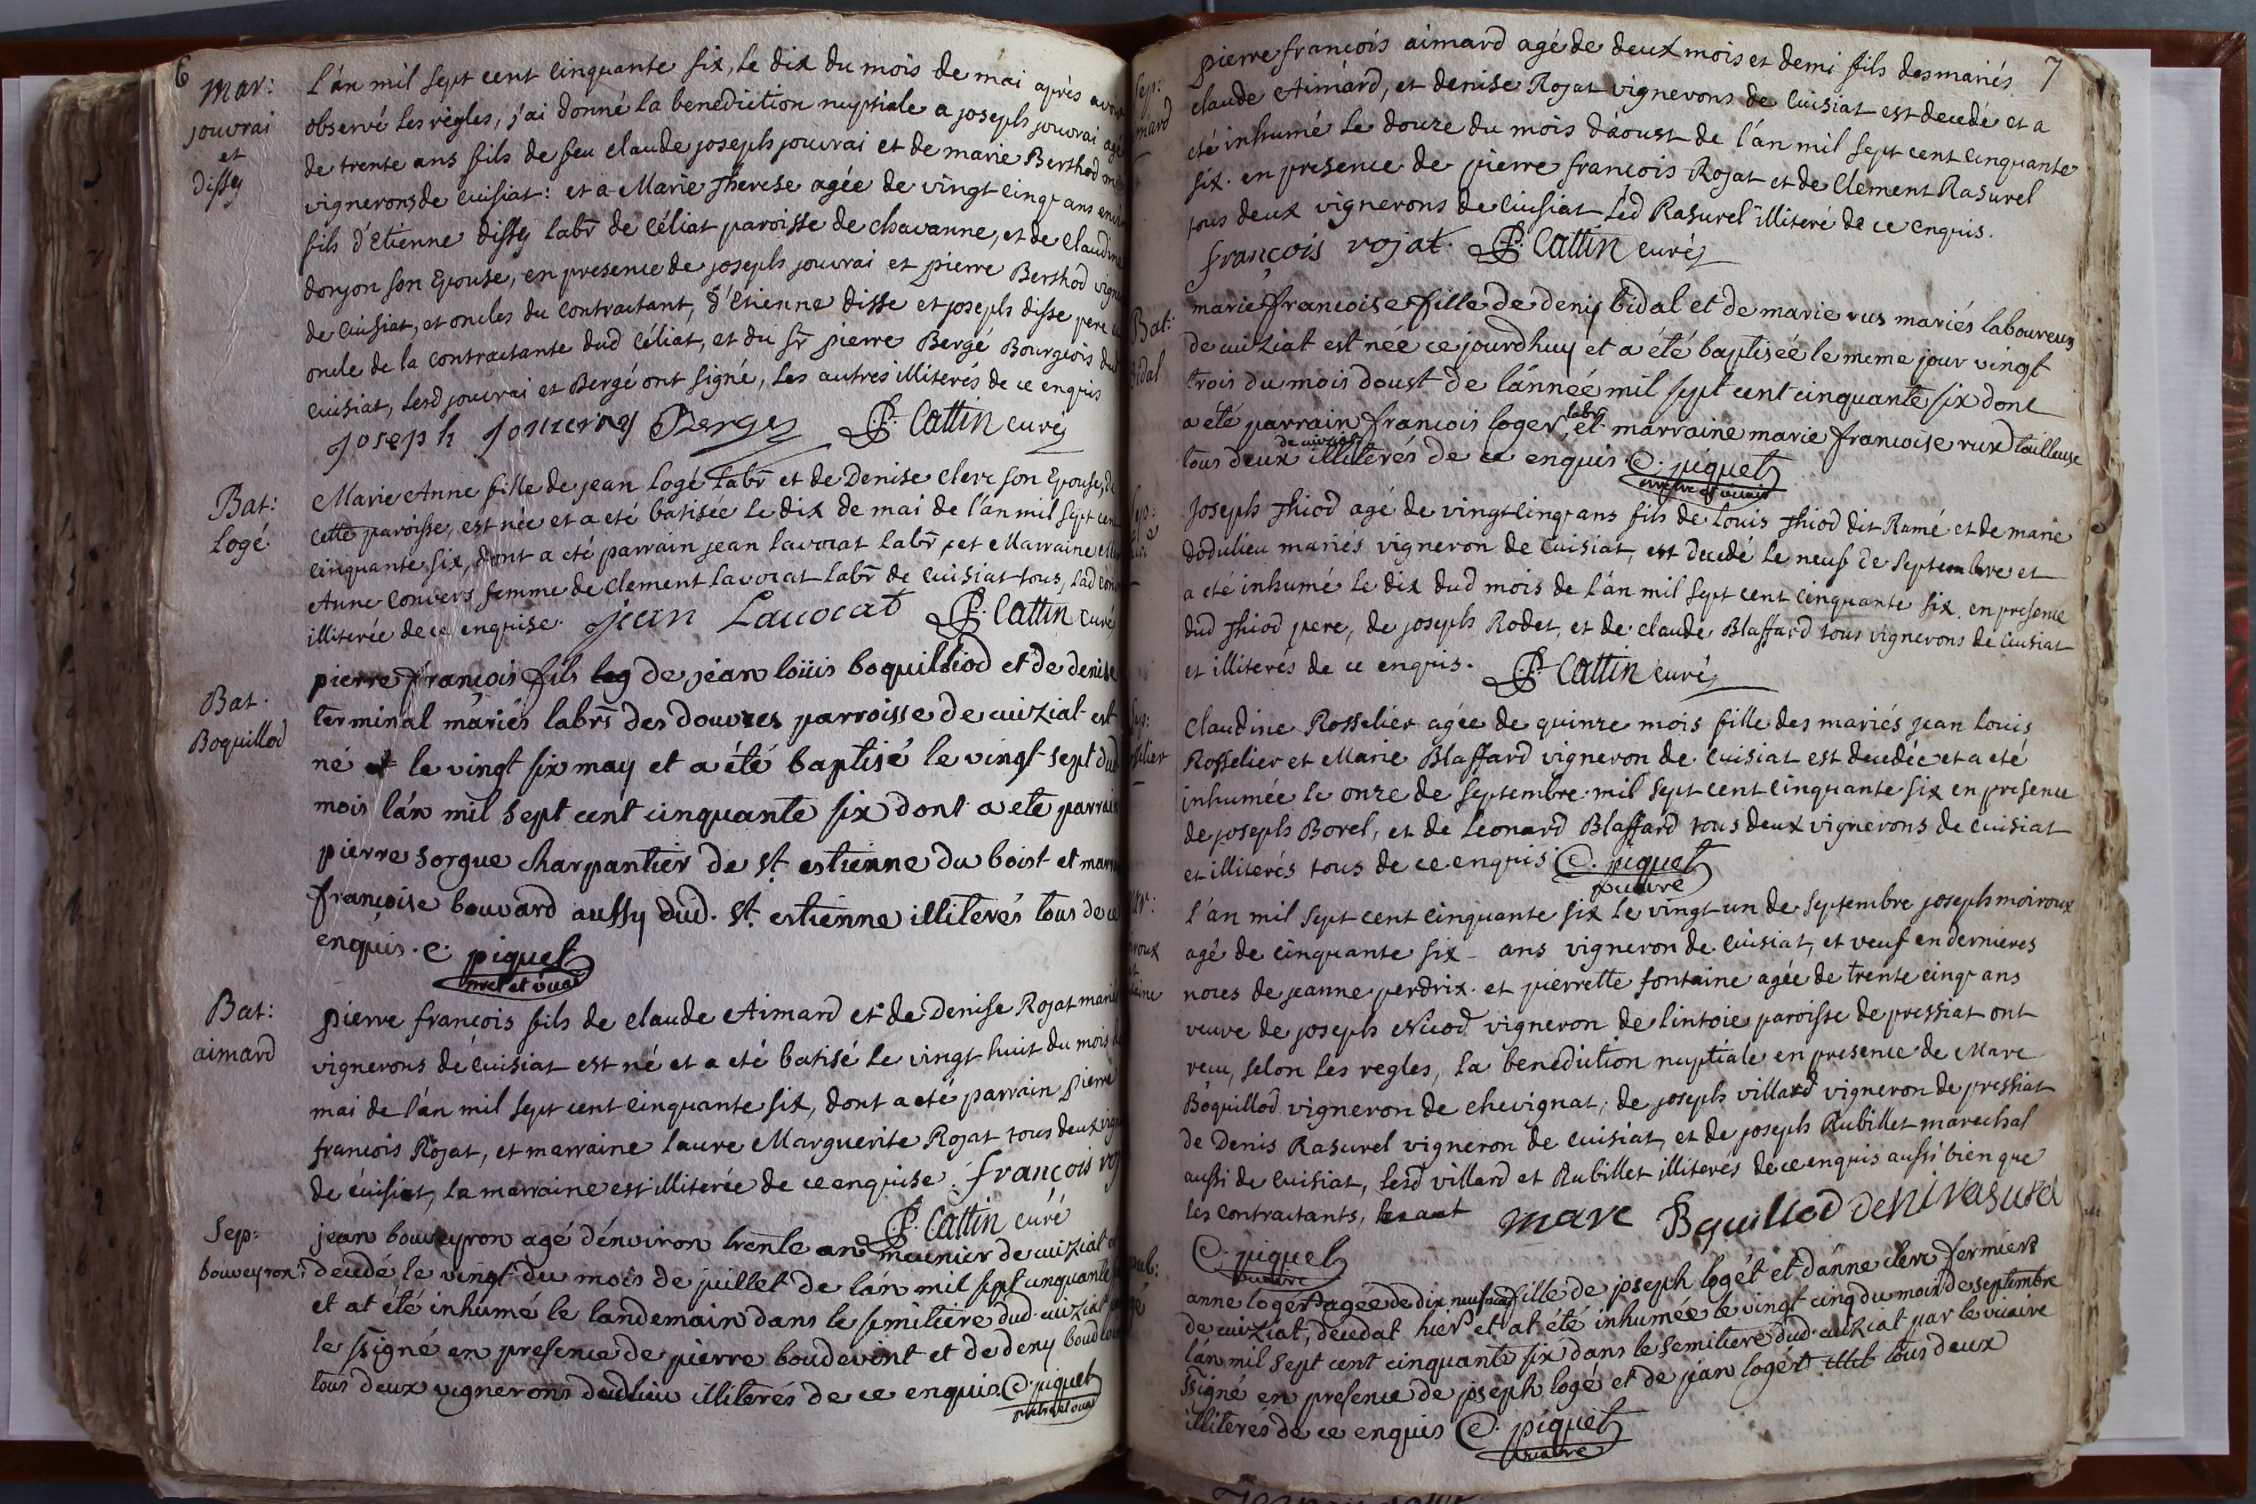 6
Mar:
jouvrai
et
dissy
L'an mil sept cent cinquante six, le dix du mois de mai après avoir
observé les règles, j'ai donné la benediction nuptiale a joseph jouvrai agé
de trente ans fils de feu claude joseph jouvrai et de marie Berthod
vignerons de Cuisiat: et a Marie Therese agée de vingt cinq ans
fils d'Etienne dissy labr de Céliat paroisse de chavanne, et de Claudine
donjon son Epouse, en presence de joseph jouvrai et pierre Berthod
de Cuisiat, et oncles du contractant, d'Etienne disse et joseph disse pere
oncle de la contractante dud Céliat, et du sr pierre Bergé Bourgeois
Cuisiat, lesd jouvrai et Bergé ont signé, les autres illiterés de ce enquis
joseph Berger P. Cattin curé
Bat:
Logé
Marie Anne fille de jean Logé labr et de Denise clerc son Epouse, de
cette paroisse, est née et a eté batisée le dix de mai de l'an mil sept cent
cinquante six, dont a eté parrain jean lavocat labr et Marraine
Anne Convers femme de Clement lavocat labr de Cuisiat tous, lad
illiterée de ce enquise. jean Lavocat P. Cattin curé
Bat.
Boquillod
pierre françois fils de jean loüis boquilliod et de denise
terminal mariés labrs des douvres parroisse de cuiziat est
né le vingt six may et a été baptisé le vingt sept dud
mois l'an mil sept cent cinquante six dont a ete parrain
pierre sorgue charpantier de st. estienne du boist et
françoise bouvard aussy dud. st. estienne illiterés tous de ce
enquis. C. piquet
Bat:
aimard
pierre françois fils de claude Aimard et de Denise Rojat
vignerons de Cuisiat est né et a eté batisé le vingt huit du mois de
mai de l'an mil sept cent cinquante six, dont a eté parrain pierre
françois Rojat, et marraine laure Marguerite Rojat tous deux
de Cuisiat, la marraine est illiterée de ce enquise. françois
P. Cattin curé
Sep:
bouveyron
jean bouveyron agé d'environ trente an meunier de cuiziat
decedé le vingt du mois de juillet de l'an mil sept cinquante
et at été inhumé le landemain dans le simitiere dud cuiziat
le ssigné en presence de pierre boudevint et de deny
tous deux vignerons dudlieu illiterés de ce enquis. C. piquet
7
pierre francois aimard agé de deux mois et demi fils des mariés
claude Aimard, et denise Rojat vignerons de Cuisiat est decedé et a
eté inhumé le douze du mois d'aoust de l'an mil sept cent cinquante
six. en presence de pierre francois Rojat et de Clement Rasurel
tous deux vignerons de Cuisiat led Rasurel illiteré de ce enquis.
françois rojat. P. Cattin curé
Bat:
marie francoise fille de deny bidal et de marie rus mariés laboureurs
de cuiziat est née ce jourdhuy et a été baptiseé le meme jour vingt
trois du mois doust de l'anneé mil sept cent cinquante six dont
a été parrain francois loger labr et marraine marie francoise rux tailleuse
tous deux illiterés de ce enquis C. piquet
Joseph Thiod agé de vingt cinq ans fils de Louis Thiod dit Ramé et de marie
dodulieu mariés vigneron de Cuisiat, est decedé le neuf de Septembre et
a eté inhumé le dix dud mois de l'an mil sept cent cinquante six en presence
dud Thiod pere, de joseph Rodet, et de claude Blaffard tous vignerons de Cuisiat
et illiterés de ce enquis. P. Cattin curé
Claudine Rosselier agée de quinze mois fille des mariés jean louis
Rosselier et Marie Blaffard vigneron de Cuisiat est decedée et a eté
inhumée le onze de septembre mil sept cent cinquante six en presence
de joseph Borel, et de Leonard Blaffard tous deux vignerons de cuisiat
et illiterés tous de ce enquis C. piquet
vicaire
L'an mil sept cent cinquante six le vingt un de septembre joseph moiroux
agé de cinquante six ans vigneron de Cuisiat, et veuf en dernieres
noces de jeanne perdrix. et pierrette fontaine agée de trente cinq ans
veuve de joseph Nicod vigneron de lintoie paroisse de pressiat ont
recu, selon les regles, la benediction nuptiale en presence de Marc
Boquillod vigneron de chevignat, de joseph villard vigneron de pressiat
de Denis Rasurel vigneron de Cuisiat, et de joseph Rubillet marechal
aussi de Cuisiat, lesd villard et Rubillet illiteres de ce enquis aussi bien que
les contractants, marc Bquillod deni rasurel
C. piquet
vicaire
anne logér agée de dix neuf fille de joseph logét et d'anne clerc fermiers
de cuiziat, decedat hier et at été inhumée le vingt cinq du mois de septembre
l'an mil sept cent cinquante six dans le semitiere dud. cuiziat par le vicaire
ssigné en presence de joseph logé et de jean logér tous deux
illiterés de ce enquis C. piquet
vicaire